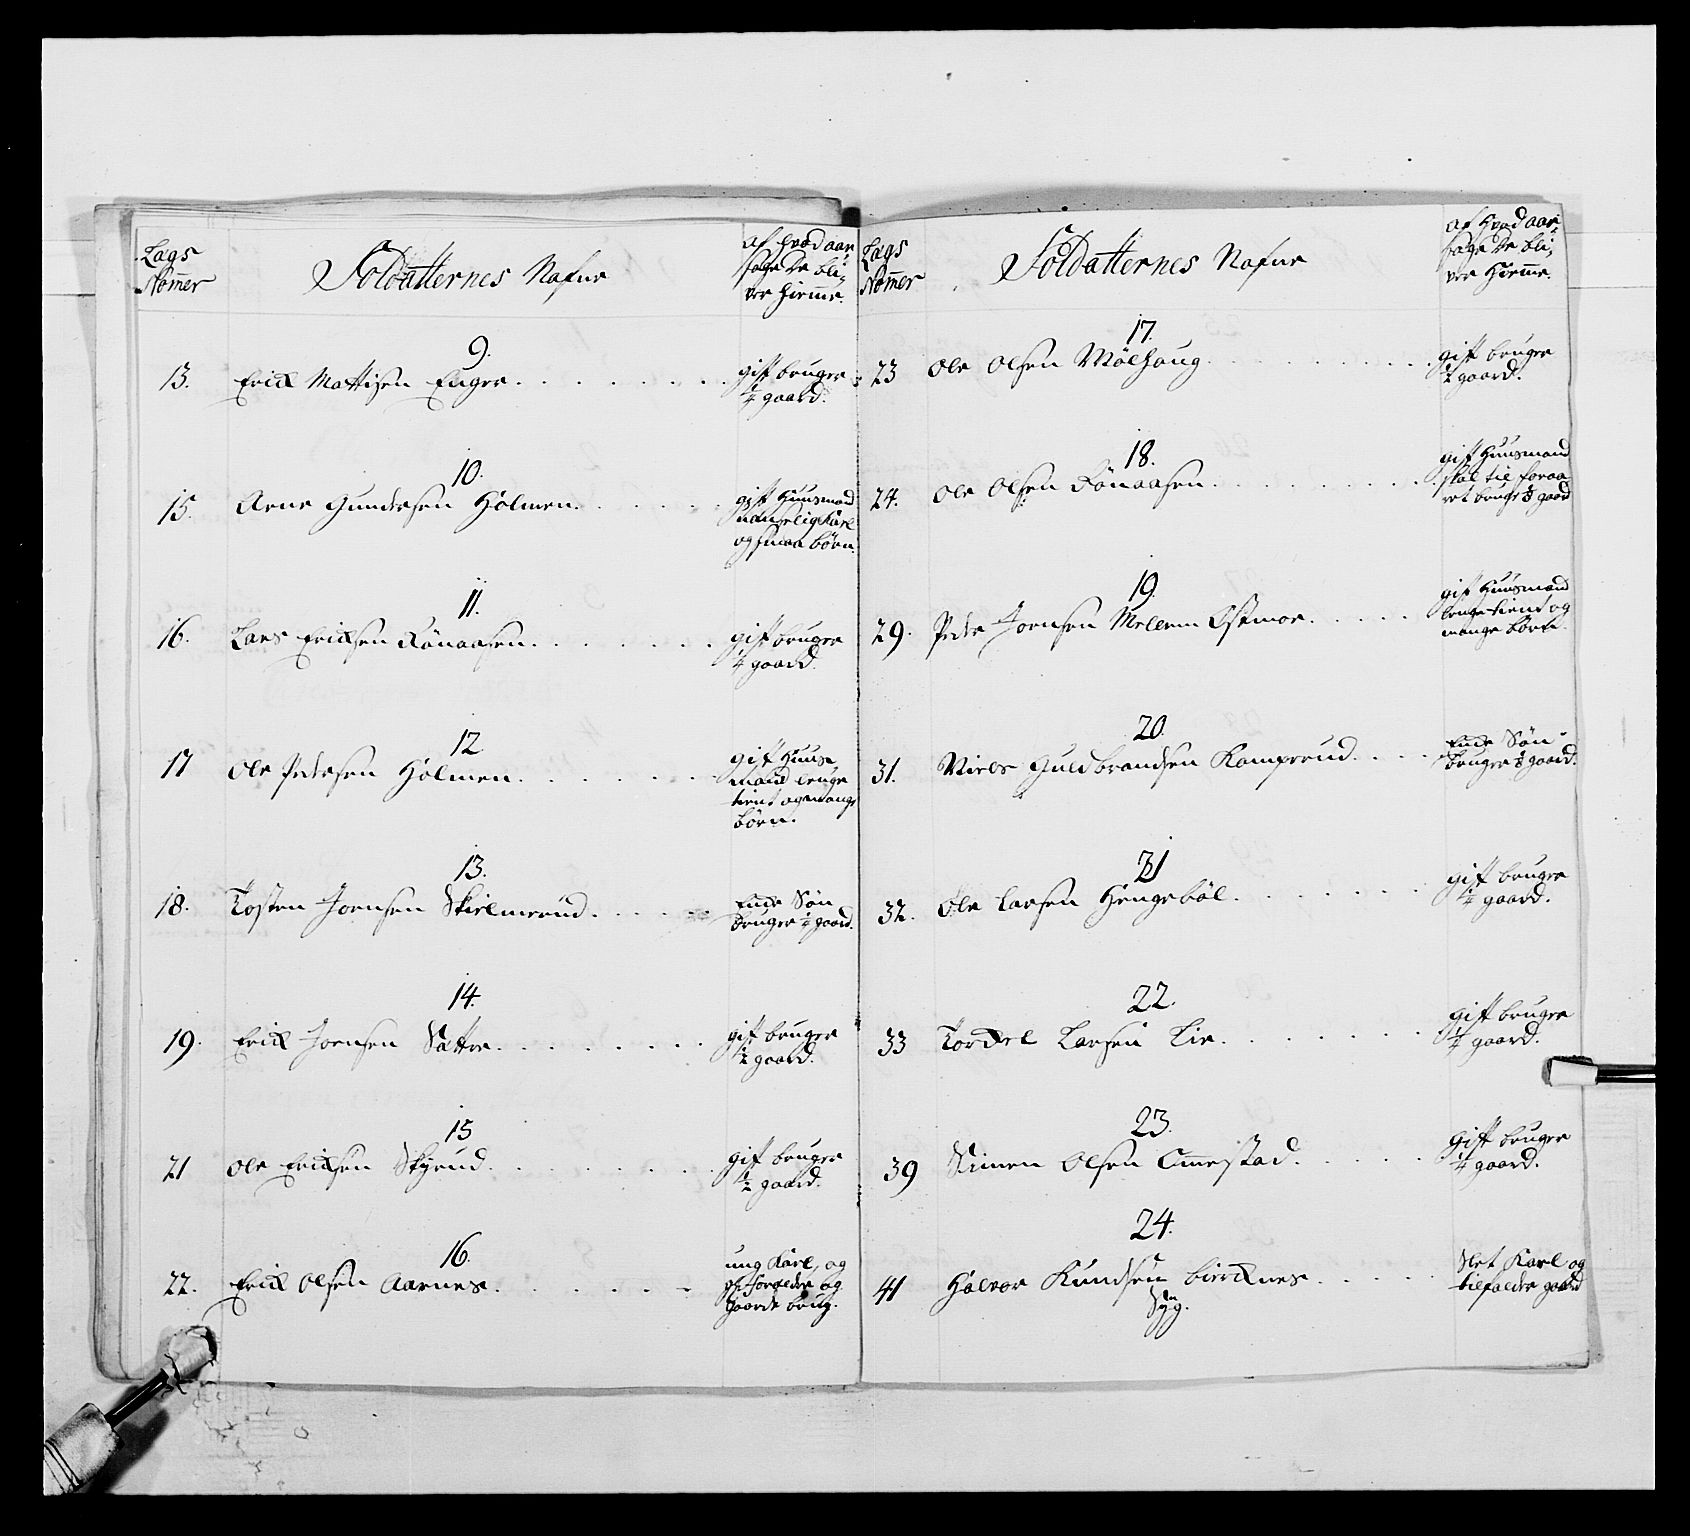 Lags Nomer
Soldatternes Nafne
af hvad aar
sage de bli,
ver hiemme.
9.
13. Erick Mattisen Enger.
gift bruger
1/4 gaard.
10.
15. Arne Gundersen Holmen.
gift Huusmand
uanselig Karl
og smaa børn.
11.
16. Lars Ericksen Rønaasen.
gift bruger
1/4 gaard.
12.
17 Ole Pedersen Holmen.
gift Huus
mand lenge
tient og mange
børn.
13.
18. Tosten Joensen Skielmerud.
Enke Søn
bruger 1/2 gaard.
14.
19. Erick Joensen Sattre.
gift bruger
1/2 gaard.
15
21 Ole Ericksen Skyrud.
gift bruger
1/2 gaard.
16.
22. Erick Olsen Aarnes.
ung Karl, og
forældre og
gaards brug.
Lags Nomer
Soldatternes Nafne
af hvad aar,
sage de bli,
ver hiemme.
17.
23 Ole Olsen Mølhaug.
gift bruger
1/2 gaard.
18.
24. Ole Olsen Rønaasen.
gift Huusmand
skal til foraa
ret bruge gaard
19.
29. Peder Joensen Mellem Osmoe.
gift Huusmand
lenge tient og
mange børn.
20.
31. Niels Guldbrandsen Kamprud.
Enke Søn
bruger gaard.
21
32. Ole Larsen Hengebøl.
gift bruger
1/4 gaard.
22.
33 Torckel Larsen Lie.
gift bruger
1/4 gaard.
23.
39 Simen Olsen Ommestad.
gift bruger
1/4 gaard.
24.
41 Halvor Knudsen bierknes.
Slet Karl og
tilfalden gaard
Syg.